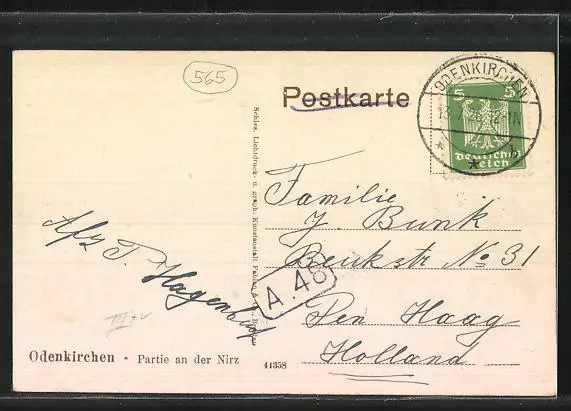 565
Postkarte
ODENKIRCHEN
5 5
Deutsches
Reich
b
Familie
J. Bunk
Beukstr No 31
Den Haag
Holland
A. 48
Afz T. Hagenbuch
Schles. Lichtdruck- u. graph. Kunstanstalt
Odenkirchen - Partie an der Nirz
41358